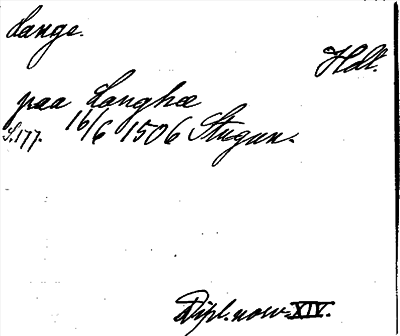 Lange.
Hdl.
paa Langhæ
S. 177. 16/6 1506 Stugun.
Dipl. norv. XIV.